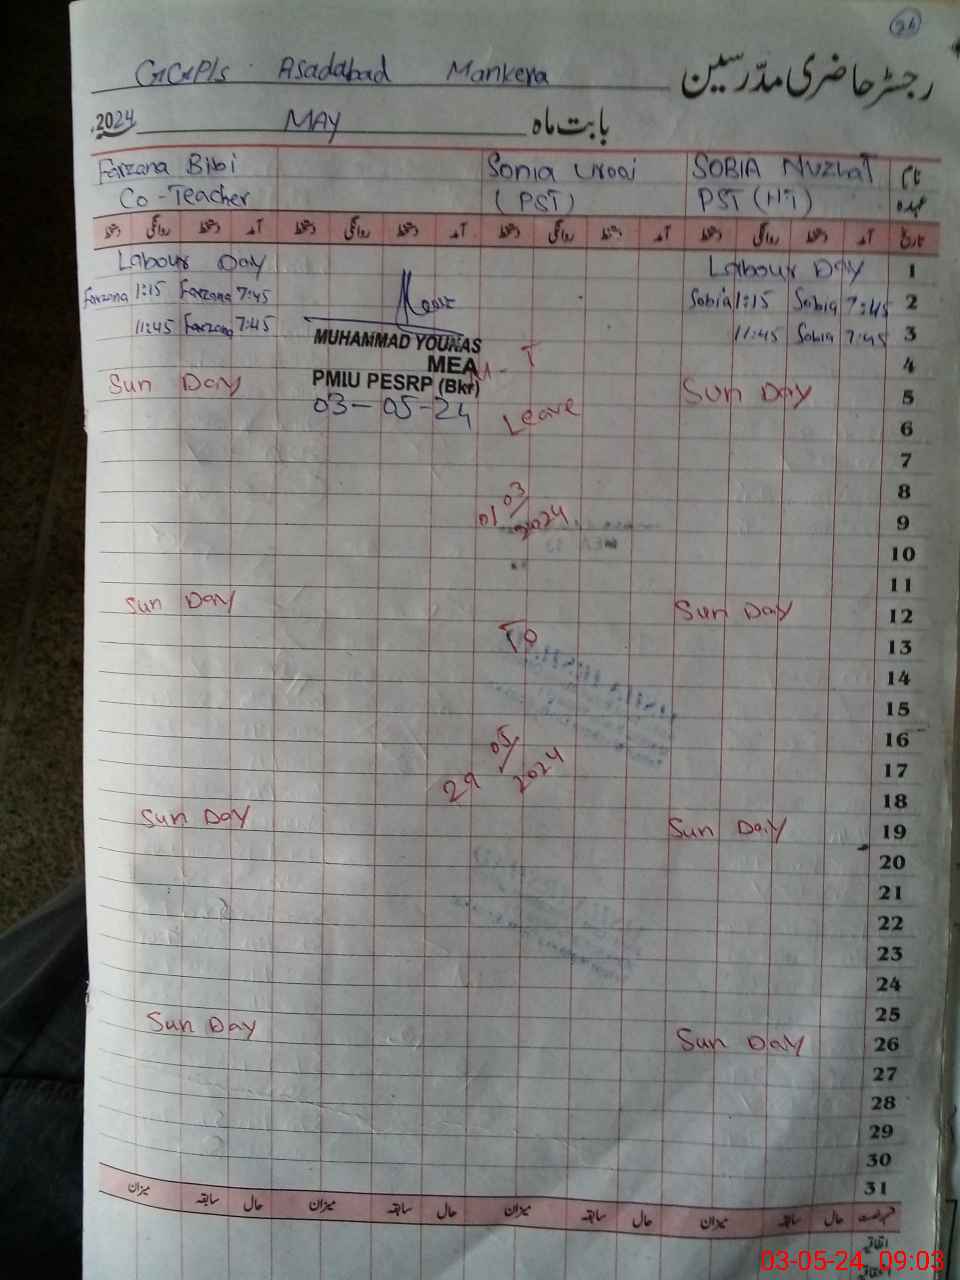 26
GGP/s Asadabad Mankera رجسٹر حاضری مدرسین
2024 MAY بابت ماہ
Farzana Bibi Sonia SOBIA NUZHAT نام
Co-Teacher (PST) PST (HT) عہدہ
دستخط روانگی دستخط آمد دستخط روانگی دستخط آمد دستخط روانگی دستخط آمد دستخط روانگی دستخط آمد تاریخ
Labour Day Labour Day 1
Farzana 1:15 Farzana 7:45 Sobia 1:15 Sobia 7:45 2
11:45 Farzana 7:45 11:45 Sobia 7:45 3
MUHAMMAD YOUNAS
MEA
PMIU PESRP (Bkr)
03-05-24
4
Sun Day Sun Day 5
Leave 6
7
8
01/03/2024 9
10
11
Sun Day Sun Day 12
To 13
14
15
16
29/05/2024 17
18
Sun Day Sun Day 19
20
21
22
23
24
25
Sun Day Sun Day 26
27
28
29
30
31
میزان سابقہ حال میزان سابقہ حال میزان سابقہ حال میزان سابقہ حال
اتفاقیہ
03-05-24 09:03